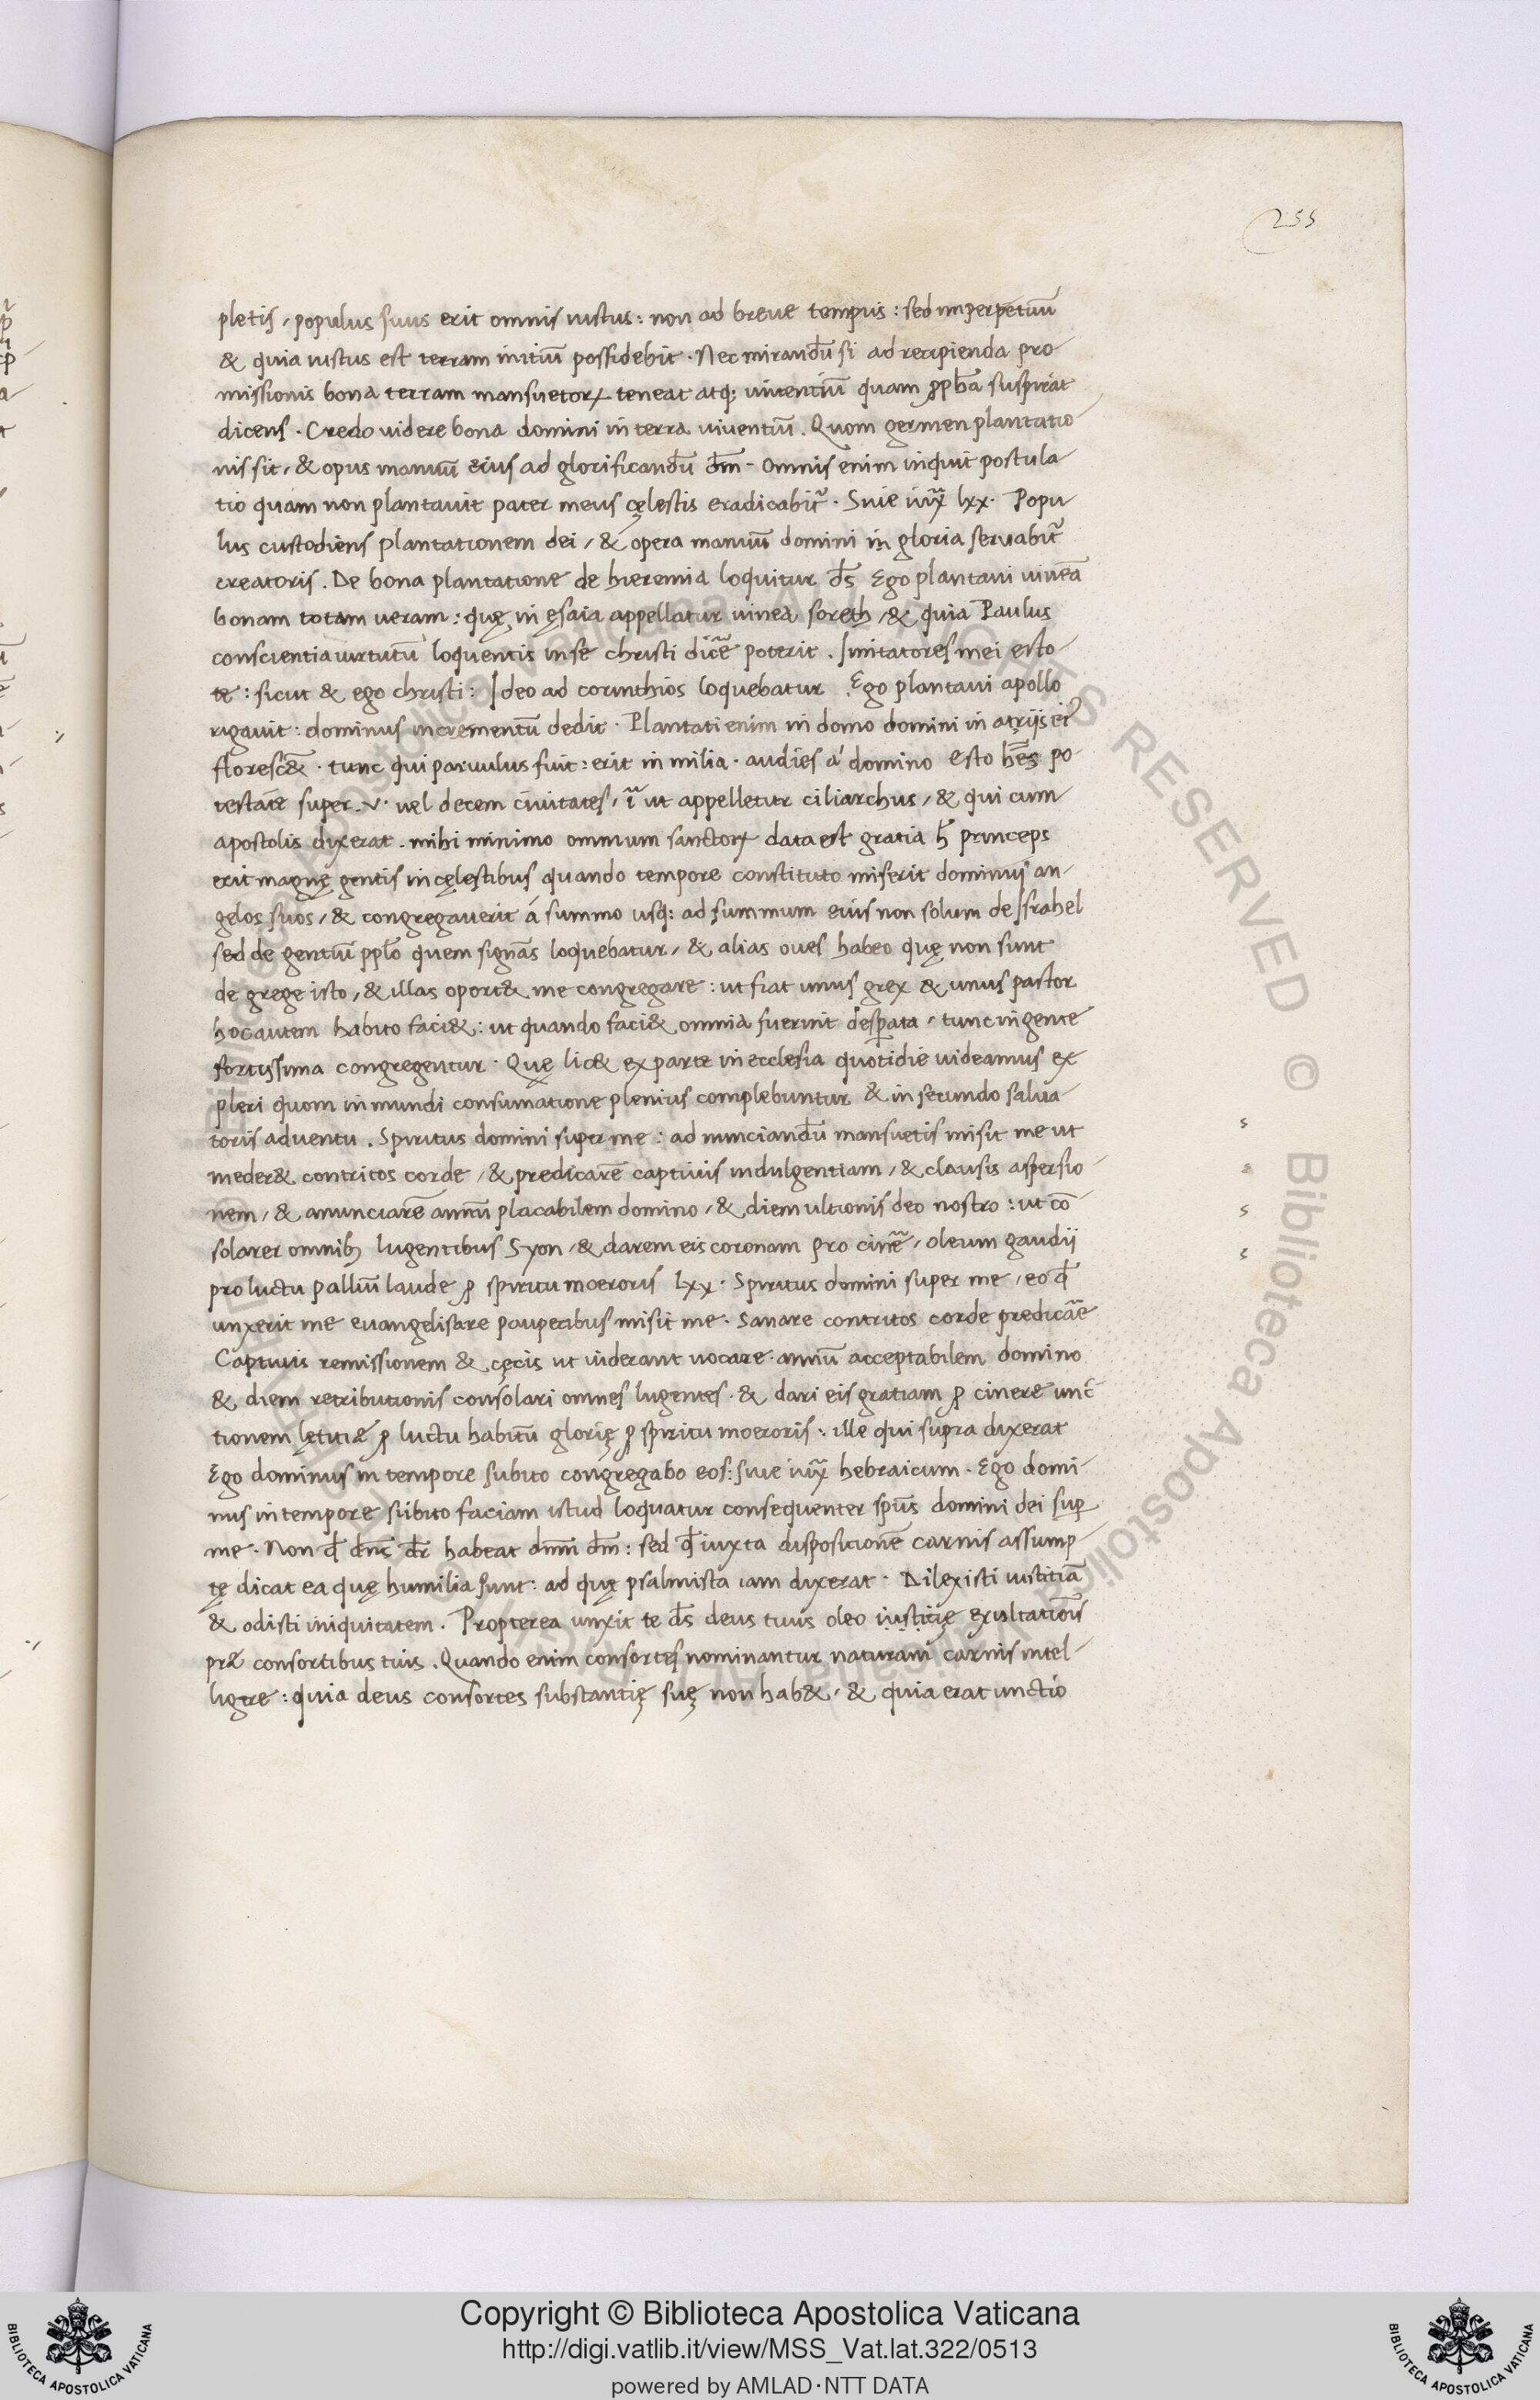 255
pletis, populus suus erit omnis iustus: non ad breue tempus: sed imperpetuũ
& quia iustus est terram initiũ possidebit. Nec mirandũ si ad recipienda pro-
missionis bona terram mansuetorꝝ teneat atq; uiuentiũ quam ꝓpħa suspirat
dicens. Credo uidere bona domini in terra uiuentiũ. Quom germen plantatio-
nis sit, & opus manuũ eius ad glorificandũ dm̃. Omnis enim inquit postula-
tio quam non plantauit pater meus cęlestis eradicabit᷑. Siue iux̃ lxx. Popu-
lus custodiens plantationem dei, & opera manuũ domini in gloria seruabit᷑
creatoris. De bona plantatione de hieremia loquitur ds̃ Ego plantaui uineã
bonam totam ueram: quę in ęsaia appellatur uinea soreth, & quia Paulus
conscientia uirtutũ loquentis in se christi dic̃e poterit. Imitatores mei esto-
te: sicut & ego christi: Ideo ad corinthios loquebatur. Ego plantaui apollo
rigauit: dominus incrementũ dedit. Plantati enim in domo domini in atrijs eiꝰ
floresc̃&. tunc qui paruulus fuit: erit in milia. audies á domino esto hñs po-
testatẽ super .v. uel decem ciuitates, ut appelletur ciliarchus, & qui cum
apostolis dixerat. mihi minimo omnium sanctorꝝ data est gratia h̃ princeps
erit magnę gentis in cęlestibus quando tempore constituto miserit dominus an-
gelos suos, & congregauerit á summo usq; ad summum eius non solum de Israhel
sed de gentiũ ppl̃o quem signãs loquebatur, & alias oues habeo quę non sunt
de grege isto, & illas oport& me congregare: ut fiat unus grex & unus pastor
hoc autem habito faci&: ut quando faci& omnia fuerint desp̱ata, tunc in gente
fortissima congregentur. Quę lic& ex parte in ecclesia quotidie uideamus ex-
pleri quom in mundi consumatione plenius complebuntur & in secundo salua-
toris aduentu. Spiritus domini super me: ad nunciandũ mansuetis misit me ut
meder& contritos corde, & predicarẽ captiuis indulgentiam, & clausis aspersio-
nem, & anunciarẽ annũ placabilem domino, & diem ultionis deo nostro: ut cõ-
solarer omnibꝫ lugentibus Syon, & darem eis coronam pro cin̄e, oleum gaudij
pro luctu palliũ laude ꝓ spiritu moeroris lxx. Spiritus domini super me, eo ꝙ
unxerit me euangelisare pauperibus misit me. Sanare contritos corde predicãe
Captiuis remissionem & cęcis ut uiderant uocare. annũ acceptabilem domino
& diem retributionis consolari omnes lugentes. & dari eis gratiam ꝓ cinere unc̃-
tionem lętitiæ ꝓ luctu habitũ glorię ꝓ spiritu moeroris: ille qui supra dixerat
Ego dominus in tempore subito congregabo eos: siue iux̃ hebraicum. Ego domi-
nus in tempore subito faciam istud loquatur consequenter spũs domini dei sup̱
me. Non ꝙ dñs dr̃ habeat dñm dm̃: sed ꝙ iuxta dispositionẽ carnis assump-
tę dicat ea quę humilia sunt: ad quę psalmista iam dixerat. Dilexisti iustitiã
& odisti iniquitatem. Propterea unxit te ds̃ deus tuus oleo iustitię exultatiõis
præ consortibus tuis. Quando enim consortes nominantur naturam carnis intel-
ligere: quia deus consortes substantię suę non hab&, & quia erat unctio
Copyright © Biblioteca Apostolica Vaticana
http://digi.vatlib.it/view/MSS_Vat.lat.322/0513
powered by AMLAD·NTT DATA
BIBLIOTECA APOSTOLICA VATICANA
BIBLIOTECA APOSTOLICA VATICANA